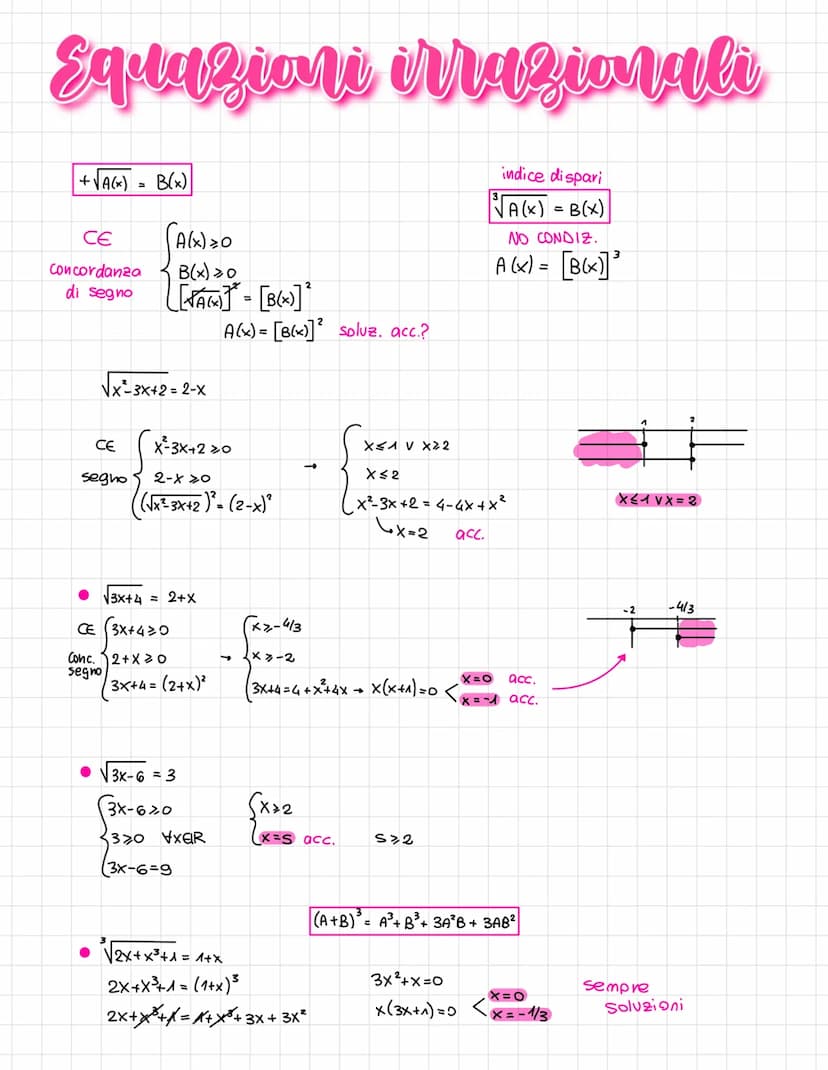 Equazioni irrazionali
+√A(x) = B(x)
CE
concordanza
di segno
{ A(x) ⩾ 0
B(x) ⩾ 0
[√A(x)]² = [B(x)]²
A(x) = [B(x)]² soluz. acc.?
indice dispari
³√A(x) = B(x)
NO CONDIZ.
A(x) = [B(x)]³
√x²-3x+2 = 2-x
CE
segno
{ x²-3x+2 ⩾ 0
2-x ⩾ 0
(√x²-3x+2)² = (2-x)²
→ { x ≤ 1 ∨ x ⩾ 2
x ≤ 2
x²-3x+2 = 4-4x+x²
↳ x=2 acc.
1 2
x ≤ 1 ∨ x = 2
• √3x+4 = 2+x
CE
Conc.
segno
{ 3x+4 ⩾ 0
2+x ⩾ 0
3x+4 = (2+x)²
→ { x ⩾ -4/3
x ⩾ -2
3x+4 = 4+x²+4x → x(x+1)=0 < x=0 acc.
x=-1 acc.
-2 -4/3
• √3x-6 = 3
{ 3x-6 ⩾ 0
3 ⩾ 0 ∀x∈ℝ
3x-6=9
{ x ⩾ 2
x=5 acc.
5 ⩾ 2
(A+B)³ = A³+B³+3A²B+3AB²
• ³√2x+x³+1 = 1+x
2x+x³+1 = (1+x)³
2x+x³+1 = 1+x³+3x+3x²
3x²+x=0
x(3x+1)=0 < x=0
x=-1/3
sempre
soluzioni